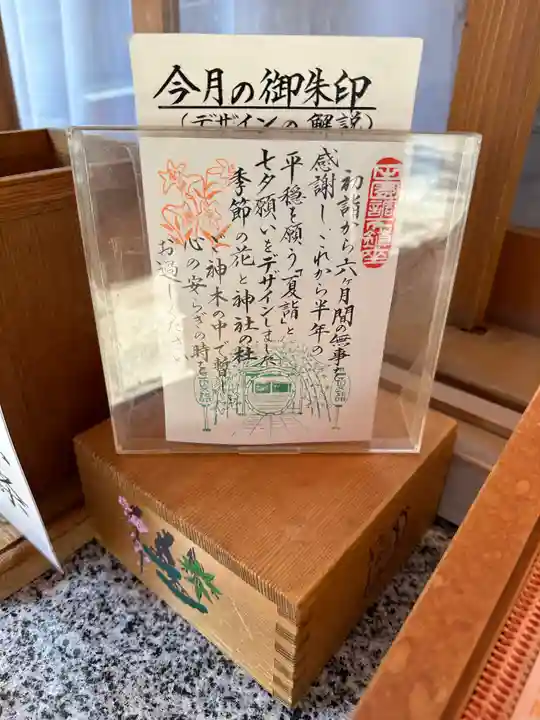 今月の御朱印
(デザインの解説)
初詣から六ヶ月間の無事を
感謝し、これから半年の
平穏を願う「夏詣」と
七夕願いをデザインしました
季節の花と神社の杜
ご神木の中で暫し
心の安らぎの時を
お過しください